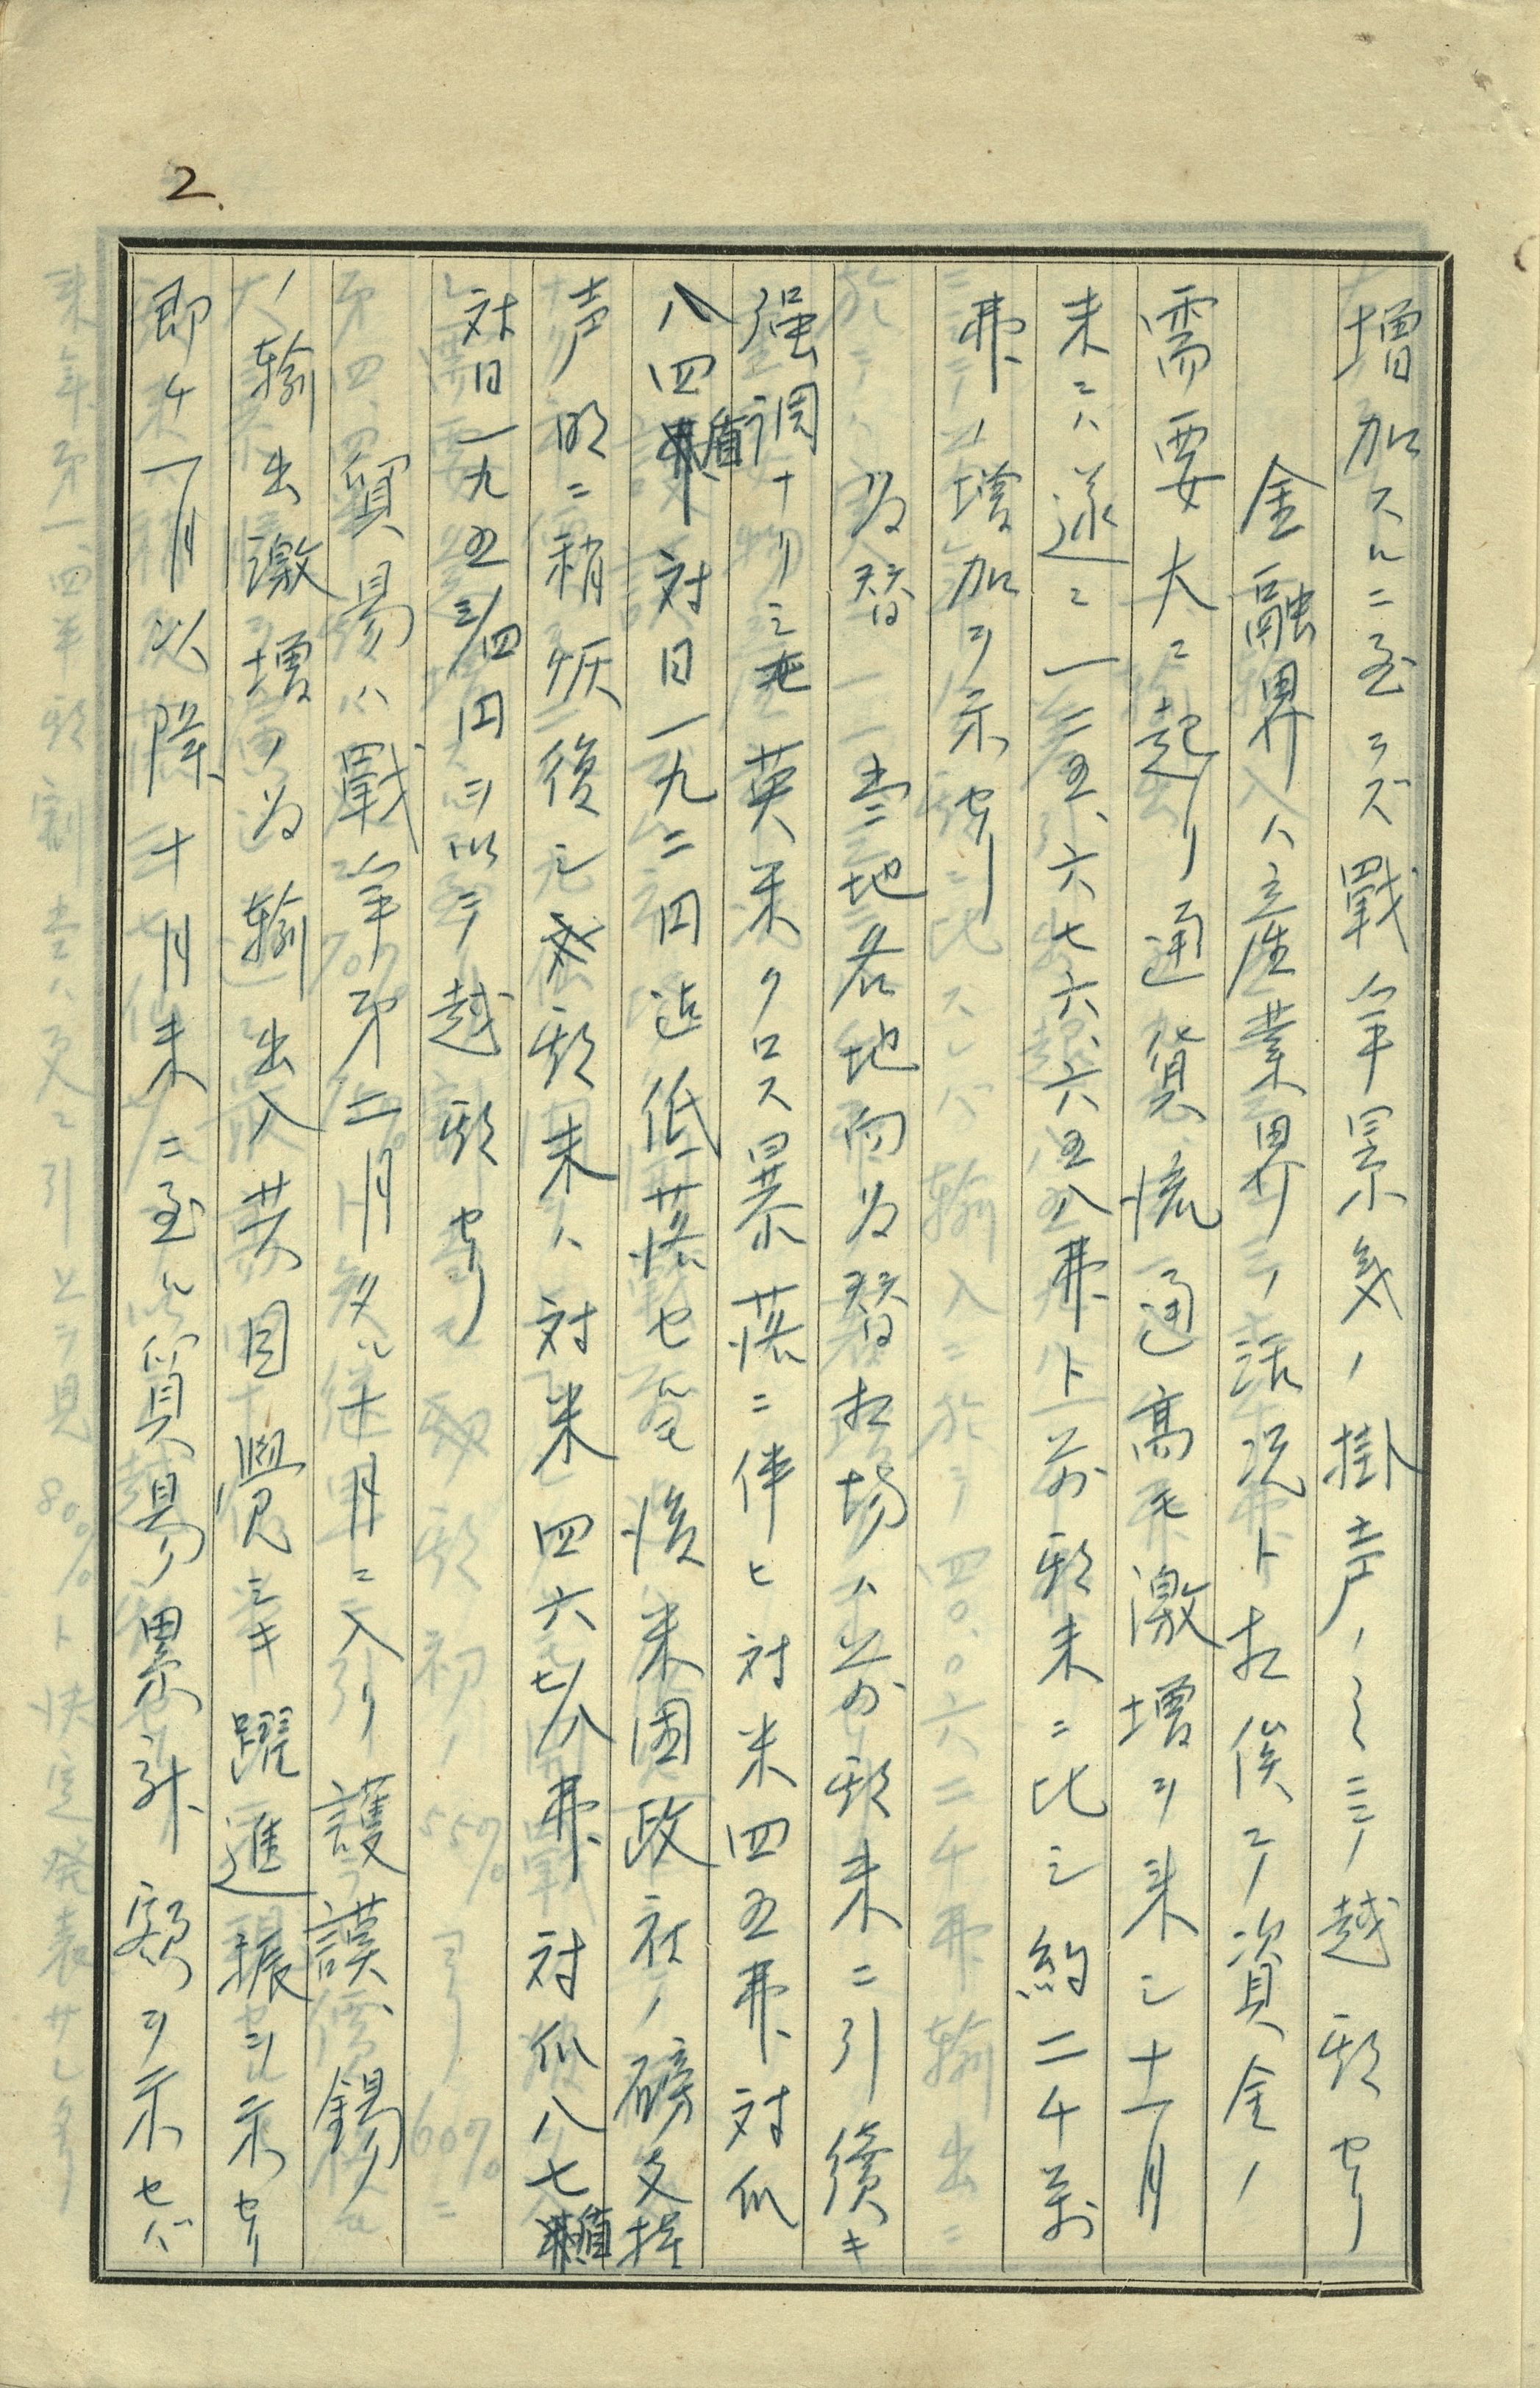 2.
増加スルニ至ラズ戰爭景気ノ掛声ノミニテ越期セリ
金融界ハ産業界ノ活況ト相俟テ資金ノ
需要大ニ起リ通貨流通高モ激増ヲ来シ十一月
末ニハ遂ニ一二五、六七六、六五八弗ト前期末ニ比シ約二千萬
弗ノ増加ヲ示セリ
為替 当地各地向為替相場ハ前期末ニ引続キ
强調ナリシモ英米クロス暴落ニ伴ヒ対米四五弗対爪
八四盾対日一九二円迄低落セルモ後米国政府ノ磅支持
声明ニ稍恢復シ期末ハ対米四六七/八弗対爪八七盾
対日一九五三/四円ヲ以テ越期セリ
貿易ハ戰爭第二月タル十月ニ入リ護謨錫
ノ輸出激増ノ為輸出入共目覺シキ躍進振ヲ示セリ
即チ一月以降十月末ニ至ル貿易累計額ヲ示セバ